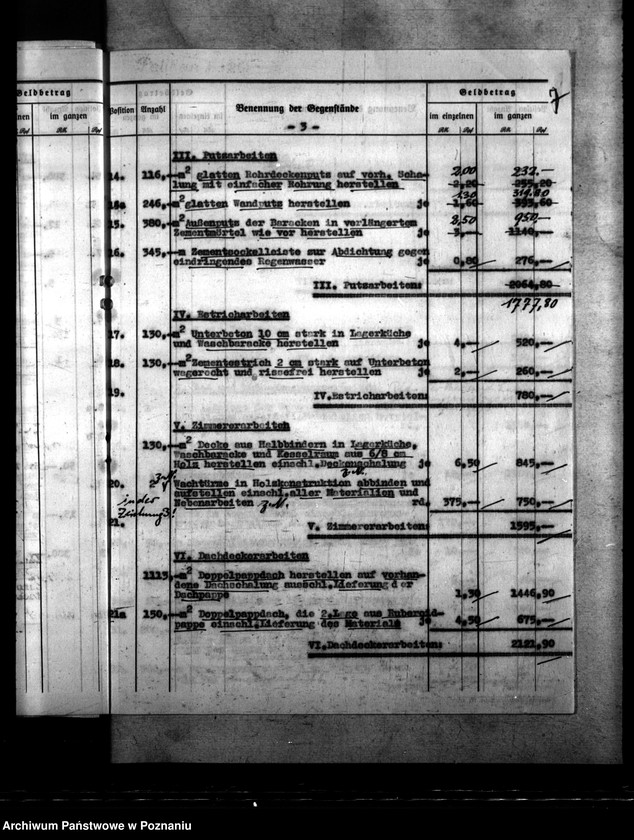 Geldbetrag
im ganzen
RK Rpf
7
Position Anzahl Benennung der Gegenstände Geldbetrag
im einzelnen im ganzen
- 3 -
RK Rpf RK Rpf
III. Putzarbeiten
14. 116,- m² glatten Rohrdeckenputz auf vorh. Scha- 2,00 232.-
lung mit einfacher Rohrung herstellen 2,20 255,20
246,- m² glatten Wandputz herstellen 1,30 319.80 1,60 393,60
15. 380,- m² Außenputz der Baracken in verlängertem 2,50 950.-
Zementmörtel wie vor herstellen je 3,- 1140,-
16. 345,- m Zementsockelleiste zur Abdichtung gegen
eindringendes Regenwasser je 0,80 276,-
III. Putzarbeiten: 2064,80
1777,80
IV. Estricharbeiten
17. 130,- m² Unterbeton 10 cm stark in Lagerküche
und Waschbaracke herstellen je 4,- 520,-
18. 130,- m² Zementestrich 2 cm stark auf Unterbeton
wagerecht und rissefrei herstellen je 2,- 260,-
19. IV. Estricharbeiten: 780,-
V. Zimmererarbeiten
130,- m² Decke aus Halbbindern in Lagerküche,
Waschbaracke und Kesselraum aus 6/8 cm
Holz herstellen einschl. Deckenschalung je 6,50 845,-
20. 2 Wachtürme in Holzkonstruktion abbinden und
aufstellen einschl. aller Materialien und
in der Nebenarbeiten rd. 375,- 750,-
Zeichnung 3!
21. V. Zimmererarbeiten: 1595,-
VI. Dachdeckerarbeiten
1113,- m² Doppelpappdach herstellen auf vorhan-
dene Dachschalung ausschl. Lieferung der
Dachpappe 1,30 1446,90
21a 150,- m² Doppelpappdach, die 2. Lage aus Ruberoid-
pappe einschl. Lieferung des Materials je 4,50 675,-
VI. Dachdeckerarbeiten: 2121,90
Archiwum Państwowe w Poznaniu